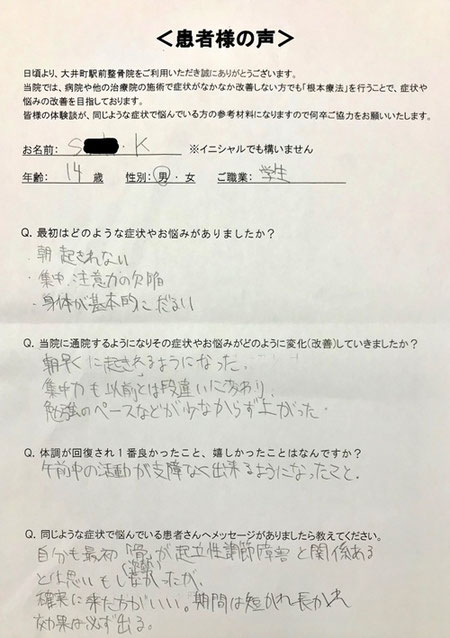 ＜患者様の声＞
日頃より、大井町駅前整骨院をご利用いただき誠にありがとうございます。
当院では、病院や他の治療院の施術で症状がなかなか改善しない方でも「根本療法」を行うことで、症状や
悩みの改善を目指しております。
皆様の体験談が、同じような症状で悩んでいる方の参考材料になりますので何卒ご協力をお願いいたします。
お名前： S K ※イニシャルでも構いません
年齢： 14 歳 性別：男・女 ご職業： 学生
Q. 最初はどのような症状やお悩みがありましたか？
・朝 起きれない
・集中、注意力の欠陥
・身体が基本的にだるい
Q. 当院に通院するようになりその症状やお悩みがどのように変化(改善)していきましたか？
朝早くに起きれるようになった.
集中力も以前とは段違いに変わり.
勉強のペースなどが少なからず上がった.
Q. 体調が回復され１番良かったこと、嬉しかったことはなんですか？
午前中の活動が支障なく出来るようになったこと.
Q. 同じような症状で悩んでいる患者さんへメッセージがありましたら教えてください。
自分も最初「骨」が起立性調節障害と関係ある
とは思いもし なかったが、
確実に来た方がいい。期間は短かれ長かれ
効果は必ず出る。